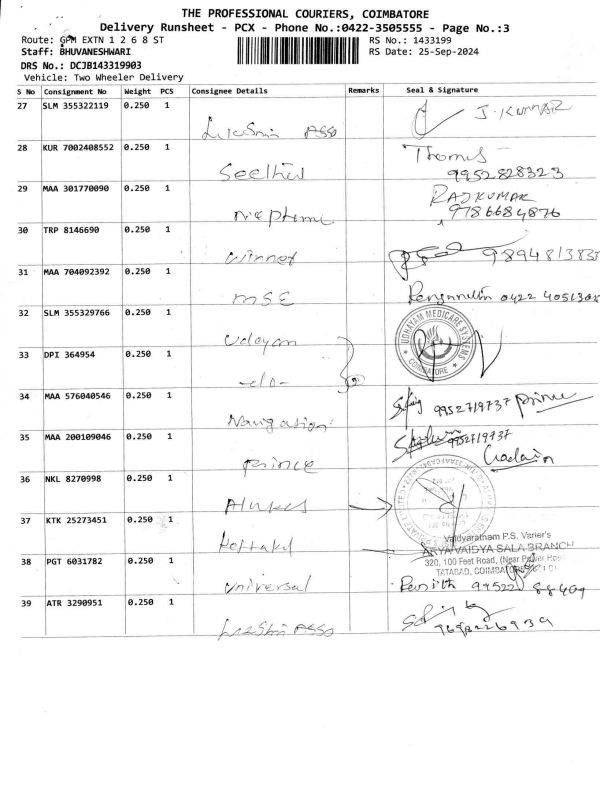 THE PROFESSIONAL COURIERS, COIMBATORE
Delivery Runsheet - PCX - Phone No.:0422-3505555 - Page No.:3
Route: GPM EXTN 1 2 6 8 ST
RS No.: 1433199
Staff: BHUVANESHWARI
RS Date: 25-Sep-2024
DRS No.: DCJB143319903
Vehicle: Two Wheeler Delivery
S No Consignment No Weight PCS Consignee Details Remarks Seal & Signature
27 SLM 355322119 0.250 1
J. KUMAR
28 KUR 7002408552 0.250 1
Thomas
9952828323
29 MAA 301770090 0.250 1
RAJKUMAR
9786684876
30 TRP 8146690 0.250 1
winner
31 MAA 704092392 0.250 1
MSE
32 SLM 355329766 0.250 1
Udayam
UDHAYAM MEDICARE SYSTEMS
COIMBATORE
33 DPI 364954 0.250 1
-do-
34 MAA 576040546 0.250 1
Navigation
9952719737 prince
35 MAA 200109046 0.250 1
prince
9952719737
36 NKL 8270998 0.250 1
37 KTK 25273451 0.250 1
Kottakal
Vaidyaratnam P.S. Varier's
ARYA VAIDYA SALA BRANCH
320, 100 Feet Road, (Near Power House)
TATABAD, COIMBATORE
38 PGT 6031782 0.250 1
universal
39 ATR 3290951 0.250 1